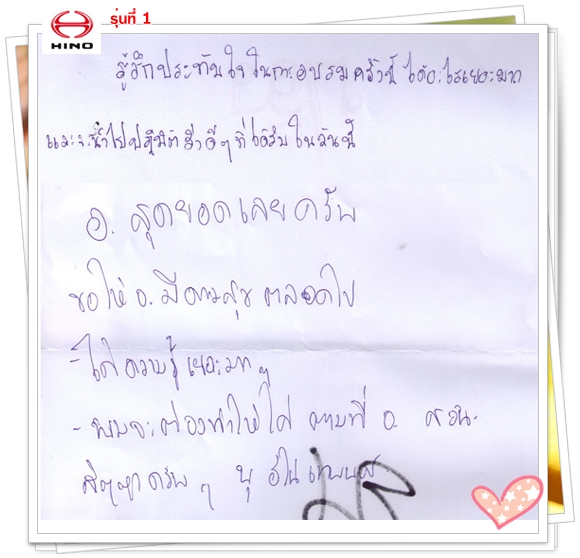 รุ่นที่ 1
HINO
รู้สึกประทับใจในการอบรมครั้งนี้ ได้อะไรเยอะมาก
และจะนำไปปฏิบัติสิ่งดีๆ ที่ได้รับในวันนี้
อ. สุดยอดเลยครับ
ขอให้ อ. มีความสุข ตลอดไป
- ได้ความรู้เยอะมากๆ
- ผมจะต้องทำให้ได้ ตามที่ อ. สอน
สัญญาครับๆ